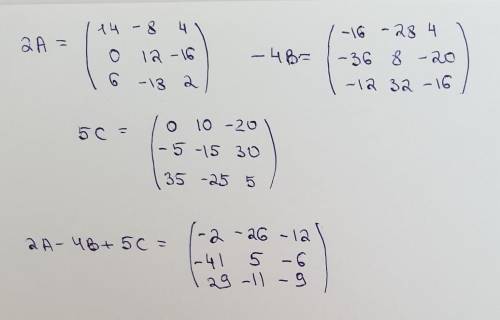 2A = ( 14 -8 4 0 12 -16 6 -18 2 )
-4B = ( -16 -28 4 -36 8 -20 -12 32 -16 )
5C = ( 0 10 -20 -5 -15 30 35 -25 5 )
2A - 4B + 5C = ( -2 -26 -12 -41 5 -6 29 -11 -9 )